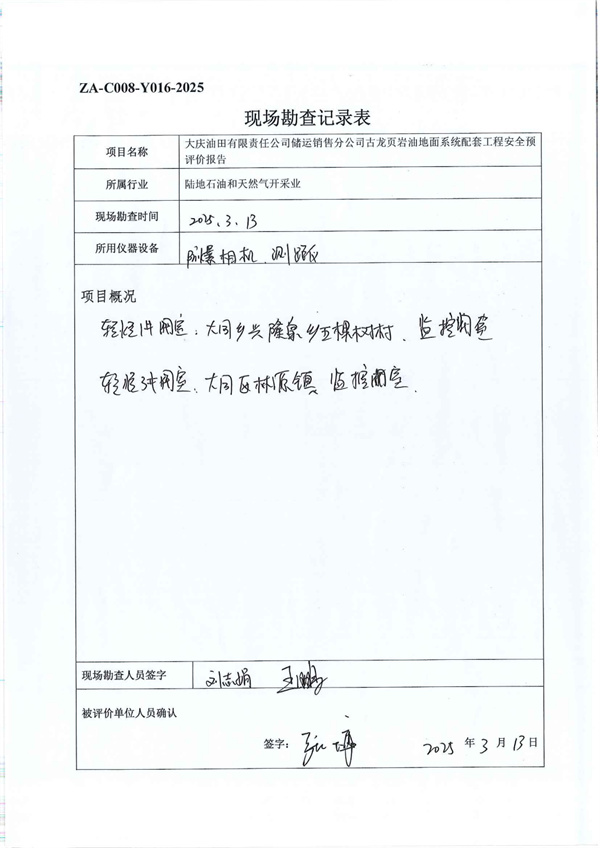 ZA-C008-Y016-2025
现场勘查记录表
项目名称
大庆油田有限责任公司储运销售分公司古龙页岩油地面系统配套工程安全预
评价报告
所属行业
陆地石油和天然气开采业
现场勘查时间
2025.3.13
所用仪器设备
防爆相机、测距仪
项目概况
轻烃 阀室:大同乡兴隆泉乡五棵树村、监控阀室
轻烃 阀室、大同区林源镇、监控阀室.
现场勘查人员签字
刘志娟 王鹏
被评价单位人员确认
签字:
2025 年 3 月 13 日